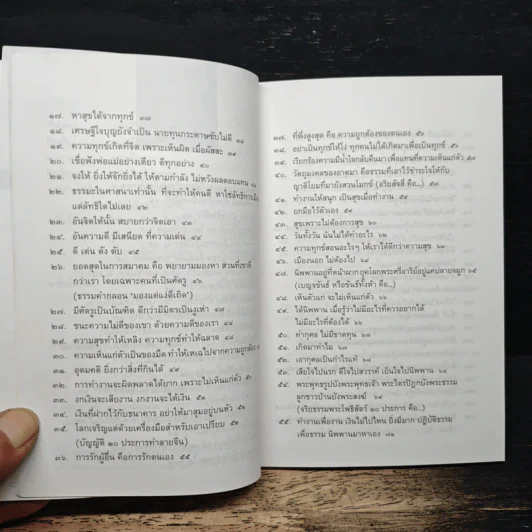 ๑๗. หาสุขได้จากทุกข์ ๓๗
๑๘. เศรษฐีใจบุญยังจำเป็น นายทุนกระดาษซับไม่ดี
๑๙. ความทุกข์เกิดที่จิต เพราะเห็นผิด เมื่อผัสสะ
๒๐. เชื่อฟังพ่อแม่อย่างเดียว ดีทุกอย่าง ๔๐
๒๑. จงให้ ยิ่งให้จักยิ่งได้ ให้ตามกำลัง ไม่หวังผลตอบแทน
๒๒. ธรรมะในศาสนาเท่านั้น ที่จะทำให้คนดี หาใช่ลัทธิการเมือง
แต่ลัทธิใดไม่เลย ๔๒
๒๓. อันจิตให้นั้น สบายกว่าจิตเอา ๔๓
๒๔. อันความดี มีเสนียด ที่ความเด่น ๔๔
๒๕. ดี เด่น ดัง ดับ ๔๕
๒๖. ยอดสุดในการสมาคม คือ พยายามมองหา ส่วนที่เขาดี
กว่าเรา โดยเฉพาะคนที่เป็นศัตรู
(ธรรมคำกลอน "มองแต่แง่ดีเถิด")
๒๗. มีศัตรูเป็นบัณฑิต ดีกว่ามีมิตรเป็นงูเห่า ๔๗
๒๘. ชนะความไม่ดีของเขา ด้วยความดีของเรา ๔๘
๒๙. ความสุขทำให้เหลิง ความทุกข์ทำให้ฉลาด
๓๐. ความเห็นแก่ตัวเป็นของมืด ทำให้เหเฉไปจากความถูกต้อง
๓๑. อุดมคติ ยิ่งกว่าสิ่งที่กินได้
๓๒. การทำงานจะผิดพลาดได้ยาก เพราะไม่เห็นแก่ตัว
๓๓. งกเงินจะเสียงาน งกงานจะได้เงิน
๓๔. เงินที่ฝากไว้กับธนาคาร อย่าให้มาสุมอยู่บนหัว
๓๕. โลกเจริญแต่ด้วยเครื่องมือสำหรับเอาเปรียบ
(บัญญัติ ๑๐ ประการทำลายจีน)
๓๖. การรักผู้อื่น คือการรักตนเอง ๕๕
๓๗. ที่พึ่งสูงสุด คือ ความถูกต้องของตนเอง ๕๖
๓๘. อย่าเป็นทุกข์ให้โง่ ทุกคนไม่ได้เกิดมาเพื่อเป็นทุกข์
๓๙. เรียกร้องความมีน้ำใจกลับคืนมา เพื่อแทนที่ความเห็นแก่ตัว
๔๐. วัตถุมงคลของอาตมา คือธรรมที่เอาไว้ชำระใจให้กับ
ญาติโยมที่มายังสวนโมกข์ (อริยสัจสี่ คือ...)
๔๑. ทำงานให้สนุก เป็นสุขเมื่อทำงาน
๔๒. ยกมือไว้ตัวเอง
๔๓. สุขเพราะไม่ต้องการสุข ๖๐
๔๔. วันทั้งวัน ฉันไม่ได้ทำอะไร
๔๕. ความทุกข์สอนอะไรๆ ให้เราได้ดีกว่าความสุข
๔๖. เมืองนอก ไม่ต้องไป
๔๗. นิพพานอยู่ที่หน้าผาก ยุคโลกพระศรีอารีย์อยู่แค่ปลายจมูก ๖๕
(เบญจขันธ์ หรือขันธ์ทั้งห้า คือ...)
๔๘. เห็นตัวแก่ จะไม่เห็นแก่ตัว
๔๙. ได้นิพพาน เมื่อรู้ว่าไม่มีอะไรที่ควรอยากได้
ไม่มีอะไรที่ต้องได้
๕๐. ทำกุศล ไม่มีขาดทุน
๕๑. เกิดมาทำไม
๕๒. เอากุศลเป็นกำไรแท้
๕๓. เสียใจไปนรก ดีใจไปสวรรค์ เย็นใจไปนิพพาน
๕๔. พระพุทธรูปบังพระพุทธเจ้า พระไตรปิฎกบังพระธรรม
ลูกชาวบ้านบังพระสงฆ์
(จริยธรรมพระโพธิสัตว์ ๑๐ ประการ คือ...)
๕๕. ทำงานเพื่องาน เงินไม่ไปไหน ยิ่งมีมาก ปฏิบัติธรรม
เพื่อธรรม นิพพานมาหาเอง